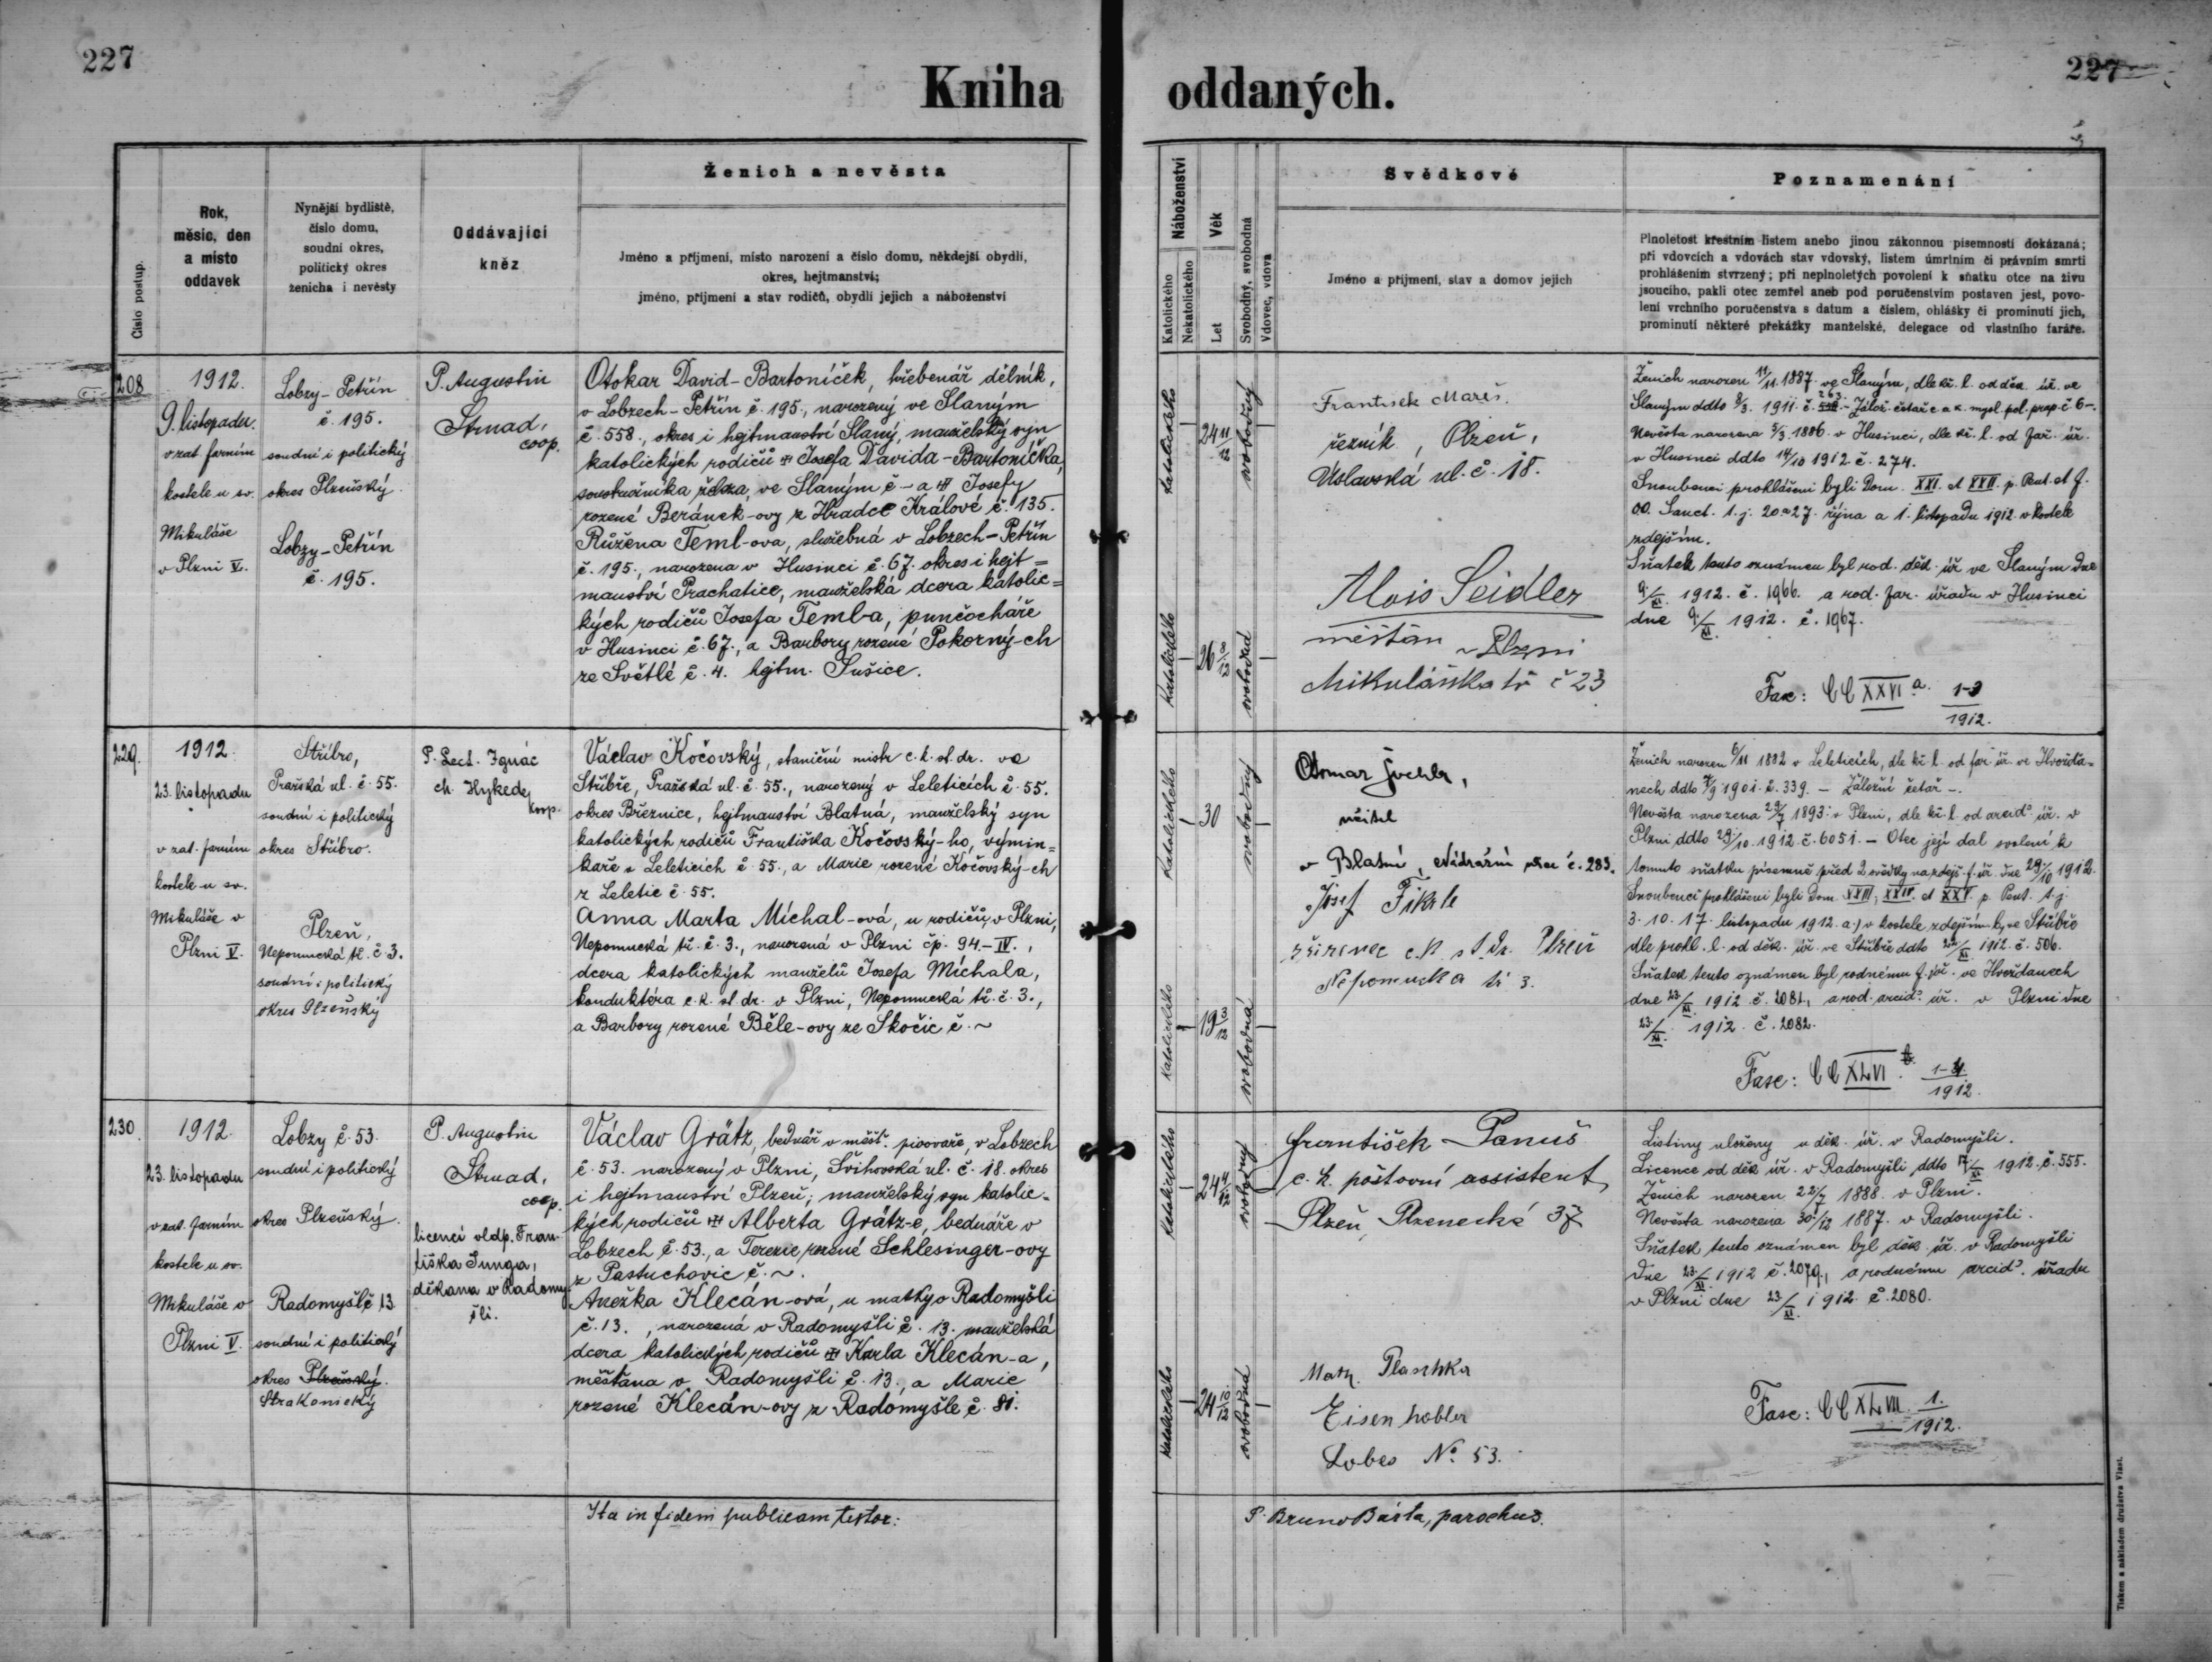 227
227
Kniha oddaných.
Číslo postup.
Rok,
měsíc, den
a místo
oddavek
Nynější bydliště,
číslo domu,
soudní okres,
politický okres
ženicha i nevěsty
Oddávající
kněz
Ženich a nevěsta
Jméno a příjmení, místo narození a číslo domu, někdejší obydlí,
okres, hejtmanství;
jméno, příjmení a stav rodičů, obydlí jejich a náboženství
Náboženství
Katolického
Nekatolického
Věk
Let
Svobodný, svobodná
Vdovec, vdova
Svědkové
Jméno a příjmení, stav a domov jejich
Poznamenání
Plnoletost křestním listem anebo jinou zákonnou písemností dokázaná;
při vdovcích a vdovách stav vdovský, listem úmrtním či právním smrti
prohlášením stvrzený; při neplnoletých povolení k sňatku otce na živu
jsoucího, pakli otec zemřel aneb pod poručenstvím postaven jest, povo-
lení vrchního poručenstva s datum a číslem, ohlášky či prominutí jich,
prominutí některé překážky manželské, delegace od vlastního faráře.
208
1912.
9. listopadu.
v zat. farním
kostele u sv.
Mikuláše
v Plzni V.
Lobzy-Petřín
č. 195.
soudní i politický
okres Plzeňský.
Lobzy-Petřín
č. 195.
P. Augustin
Strnad,
coop.
Otokar David-Bartoníček, hřebenář dělník,
v Lobzech-Petřín č. 195., narozený ve Slaným
č. 558., okres i hejtmanství Slaný, manželský syn
katolických rodičů Josefa Davida-Bartoníčka,
soustružníka ve Slaným č - a Josefy
rozené Beránek-ovy z Hradce Králové č. 135.
Růžena Teml-ova, služebná v Lobzech-Petřín
č. 195., narozena v Husinci č. 67. okres i hejt=
manství Prachatice, manželská dcera katolic=
kých rodičů Josefa Teml-a, punčocháře
v Husinci č. 67., a Barbory rozené Pokorný-ch
ze Světlé č. 4. hejtm. Sušice.
katolického
24 11/12
svobodný
katolického
26 8/12
svobodná
František Mareš.
řezník, Plzeň,
Úslavská ul. č. 18.
Alois Seidler
měšťan v Plzni
Mikulášská tř č 23
Ženich narozen 11/11. 1887. ve Slaným, dle kř. l. od děk. úř. ve
Slaným ddto 8/3. 1911. č. 263.
Nevěsta narozena 5/3. 1886. v Husinci, dle kř. l. od far. úř.
v Husinci ddto 14/10 1912 č. 274.
Snoubenci prohlášeni byli Dom. XXI. et XXII. p. Pent. et f.
OO. Sanct. t. j. 20. a 27. října a 1. listopadu 1912 v kostele
zdejším.
Sňatek tento oznámen byl rod. děk. úř ve Slaným dne
9./XI. 1912. č. 1966. a rod. far. úřadu v Husinci
dne 9./XI. 1912. č. 1967.
Fasc: CCXXVI a. 1-3/1912.
229.
1912.
23. listopadu
v zat. farním
kostele u sv.
Mikuláše v
Plzni V.
Stříbro,
Pražská ul. č. 55.
soudní i politický
okres Stříbro.
Plzeň,
Nepomucká tř. č 3.
soudní i politický
okres Plzeňský
P. Lect. Ignác
koop.
Václav Kočovský, staniční mistr c. k. st. dr. ve
Stříbře, Pražská ul. č. 55., narozený v Leleticích č. 55.
okres Březnice, hejtmanství Blatná, manželský syn
katolických rodičů Františka Kočovský-ho, výmin=
kaře v Leleticích č. 55., a Marie rozené Kočovský-ch
z Leletic č. 55.
Anna Marta Míchal-ová, u rodičů v Plzni,
Nepomucká tř. č. 3., narozená v Plzni čp. 94.-IV.,
dcera katolických manželů Josefa Míchala,
konduktéra c. k. st. dr. v Plzni, Nepomucká tř. č. 3.,
a Barbory rozené Běle-ovy ze Skočic č. ~
katolického
30
svobodný
katolického
19 3/12
svobodná
učitel
v Blatné, č. 283.
Josef Fikrle
zřízenec c. k. st. dr. Plzeň
Nepomucká tř. 3.
Ženich narozen 6/11 1882 v Leleticích, dle kř. l. od far. úř. ve Hvožďa-
nech ddto 1901. č. 339. - Záložní četař -.
Nevěsta narozena 29/7 1893 v Plzni, dle kř. l. od arcid. úř. v
Plzni ddto 29/10. 1912 č. 6051. - Otec její dal svolení k
tomuto sňatku písemně před 2 svědky na zdejš. f. úř. dne 29/10 1912.
Snoubenci prohlášeni byli Dom. XXIII, XXIV. et XXV. p. Pent. t. j.
3. 10. 17. listopadu 1912. a) v kostele zdejším b, ve Stříbře
dle prohl. l. od děk. úř. ve Stříbře ddto 22/XI 1912. č. 506.
Sňatek tento oznámen byl rodnému f. úř. ve Hvožďanech
dne 23./XI. 1912 č. 2081, a rod. arcid. úř. v Plzni dne
23./XI. 1912. č. 2082.
Fasc: CCXLVI b. 1-4/1912.
230.
1912.
23. listopadu
v zat. farním
kostele u sv.
Mikuláše v
Plzni V.
Lobzy č. 53.
soudní i politický
okres Plzeňský.
Radomyšl č 13
soudní i politický
okres Plzeňský.
Strakonický
P. Augustin
Strnad,
coop.
licencí vldp. Fran-
tiška Šunga,
děkana v Radomy-
šli.
Václav Grätz, bednář v měšť. pivovaře, v Lobzech
č. 53. narozený v Plzni, Švihovská ul. č. 18. okres
i hejtmanství Plzeň; manželský syn katolic-
kých rodičů Alberta Grätz-e, bednáře v
Lobzech č. 53., a Terezie rozené Schlesinger-ovy
z Pastuchovic č. ~.
Anežka Klecán-ová, u matky v Radomyšli
č. 13., narozená v Radomyšli č. 13. manželská
dcera katolických rodičů Karla Klecán-a,
měšťana v Radomyšli č. 13., a Marie
rozené Klecán-ovy z Radomyšle č. 81.
katolického
24 4/12
svobodný
katolického
24 10/12
svobodná
František Panuš
c. k. poštovní assistent
Plzeň, Plzenecká 37
Math. Plaschka
Eisenhobler
Lobes No. 53.
Listiny uloženy u děk. úř. v Radomyšli.
Licence od děk. úř. v Radomyšli ddto 17./XI. 1912. č. 555.
Ženich narozen 22/7 1888. v Plzni.
Nevěsta narozena 30/12 1887. v Radomyšli.
Sňatek tento oznámen byl děk. úř. v Radomyšli
dne 23./XI. 1912 č. 2079., a rodnému arcid. úřadu
v Plzni dne 23./XI. 1912. č. 2080.
Fasc: CCXLVII. 1./1912.
Ita in fidem publicam testor:
P. Bruno Bárta, parochus.
Tiskem a nákladem družstva Vlast.